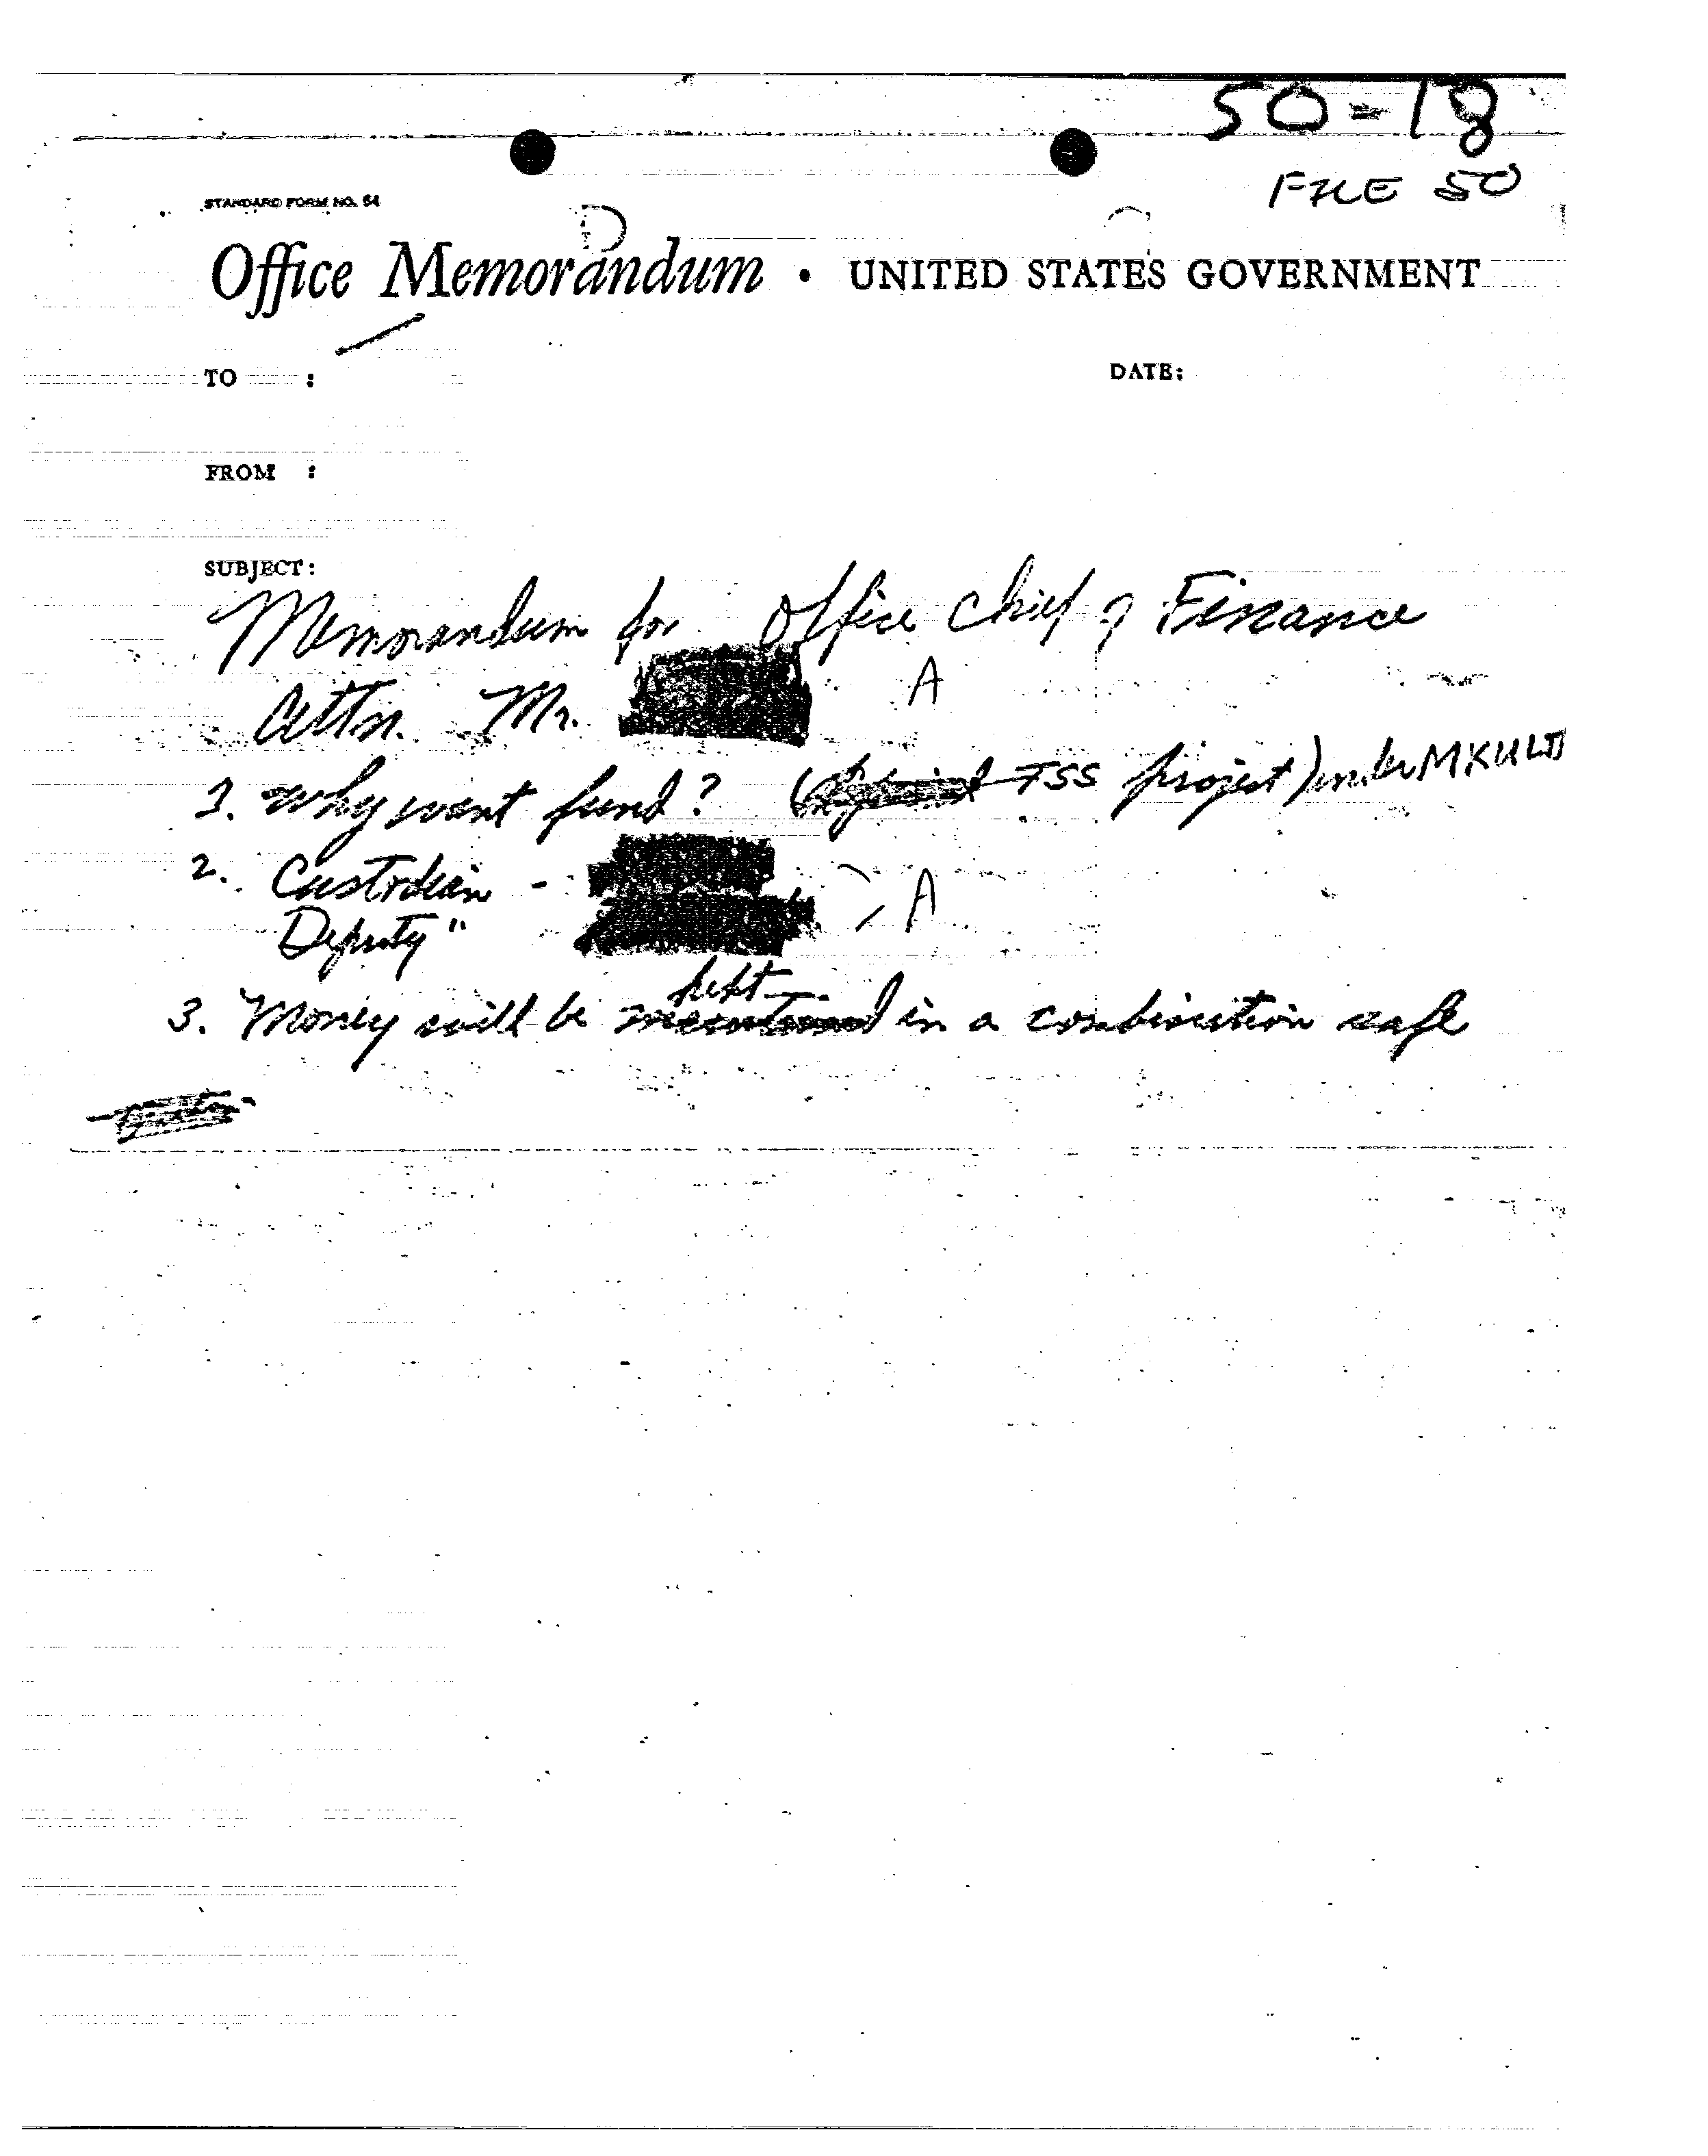 50-18
FILE 50
STANDARD FORM NO. 64
Office Memorandum • UNITED STATES GOVERNMENT
TO :
DATE:
FROM :
SUBJECT:
Memorandum for Office Chief of Finance
Attn. Mr. A
1. Why want fund? ( TSS project) under MKULT
2. Custodian - A
Deputy "
kept
3. Money will be in a combination safe